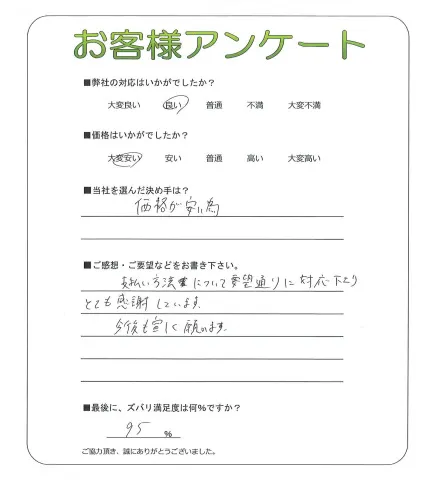 お客様アンケート
■弊社の対応はいかがでしたか？
大変良い 良い 普通 不満 大変不満
■価格はいかがでしたか？
大変安い 安い 普通 高い 大変高い
■当社を選んだ決め手は？
価格が安い為
■ご感想・ご要望などをお書き下さい。
支払い方法についても要望通りに対応下さり
とても感謝しています。
今後も宜しく願います。
■最後に、ズバリ満足度は何%ですか？
95 %
ご協力頂き、誠にありがとうございました。